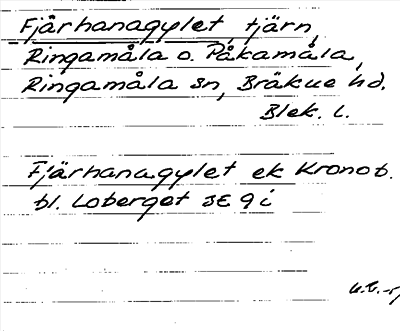 Fjärhanagylet, tjärn,
Ringamåla o. Påkamåla,
Ringamåla sn, Bräkne hd.
Blek. l.
Fjärhanagylet ek Kronob.
bl. Loberget SE 9 i